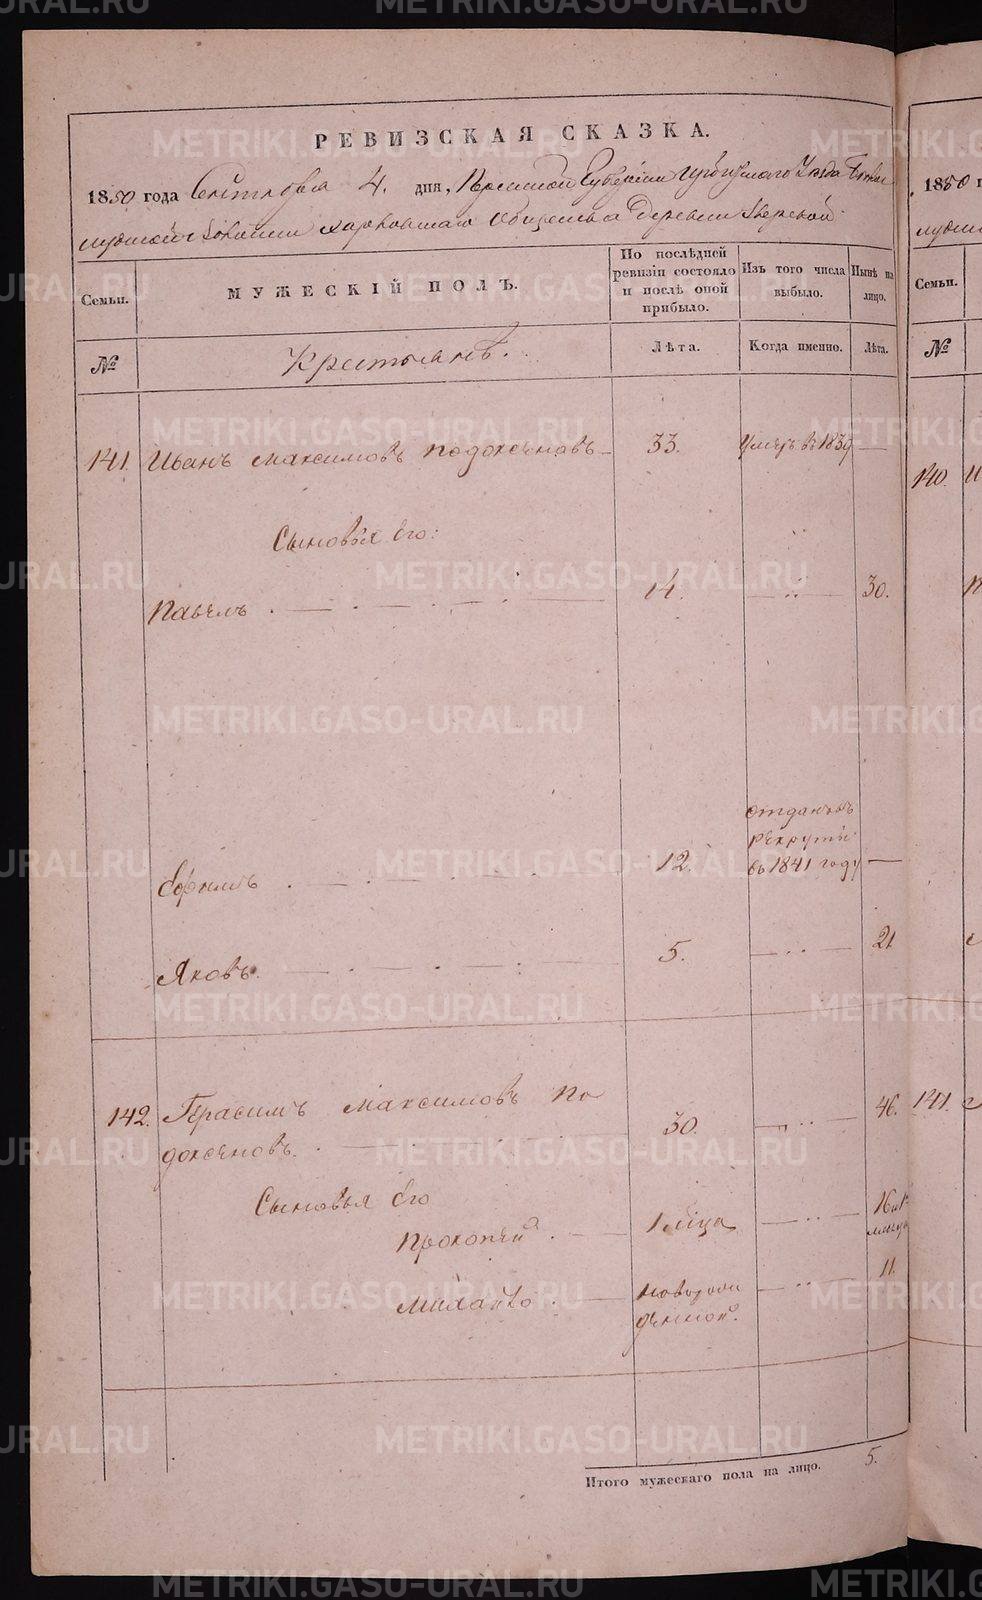 РЕВИЗСКАЯ СКАЗКА.
1850 года Сентября 4. дня, Пермской Губернии Ирбитскаго Уезда
волости Харловскаго общества Деревни Зверевой
Семьи.
МУЖЕСКІЙ ПОЛЪ.
По послѣдней ревизіи состояло и послѣ оной прибыло.
Изъ того числа выбыло.
Нынѣ на лицо.
№
Крестьянъ.
Лѣта.
Когда именно.
Лѣта.
141. Иванъ Максимовъ Подоксеновъ 33. Умеръ въ 1839 —
Сыновья Его:
Павелъ . — . — . — . — 14. — .. — 30.
отданъ въ
рекруты
Ефимъ . — . — . — . — 12. въ 1841 году —
Яковъ. — . — . — : — 5. — .. — 21
142. Герасимъ Максимовъ По
доксеновъ. . — 30. — .. — 46.
Сыновья Его
Прокопій . — 1 мѣсяца — .. — 16 и 1 месяца
Михайло . — новорожденной. — .. — 11
Итого мужескаго пола на лицо. 5.
1850 г
Семьи.
№
140. И
П
141.
METRIKI.GASO-URAL.RU